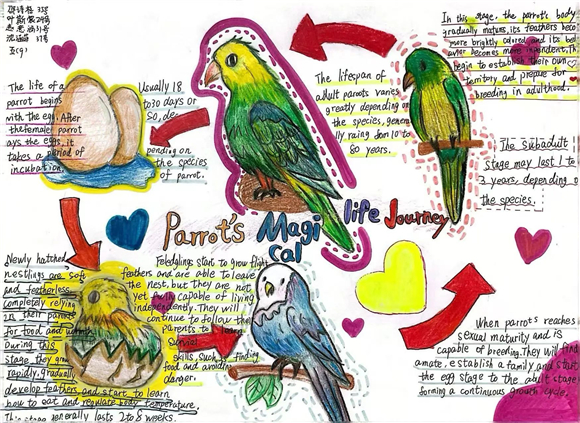 35号
37号
五(9)
In this stage, the parrot's body
gradually matures, its feathers beco
me brightly colored and its be
havior becomes more inpendent. Th
begin to establish their own
territory and prepare for
breeding in adulthood.
The life of a
parrot begins
with the egg. After
the female parrot
ays the eggs, it
takes a period of
incubation
Usually 18
to 30 days or
So, de
pending on
the species
of parrot.
The lifespan of
adult paroots varies
greatly depending on
the species, gener
lly raing from 10 to
80 years.
The subadult
stage may last 1 to
3 years, depending o
the species.
Parrot's Magi
cal life Journey
Newly hatched
nestlings are soft
and featherless
completely relying
on their parents
for food and warmth
During this
stage they grow
rapidly, gradually
develop feathers and start to learn
how to eat and regulate body temperature.
This stage generally lasts 2 to 8 weeks.
Foledgling start to grow flight
feathers and are able to leave
the nest, but They are not
yet fully capable of living
independently. They will
continue to follow the
Parents to learn
skills, such as finding
food and avoiding
danger.
When parrots reaches
sexual maturity and is
capable of breeding. They will find
a mate, establish a family and start
the egg stage to the adult stage
forming a continuous growth cycle.